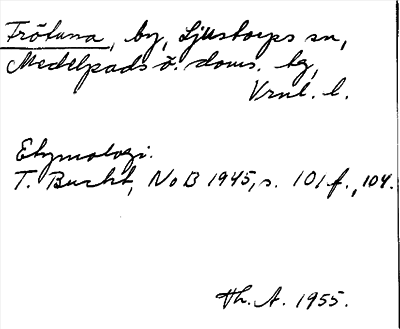 Frötuna, by, Ljustorps sn,
Medelpads ö. doms. tg,
Vrnl. l.
Etymologi.
T. Bucht, NoB 1945, s. 101 f., 104.
Hh. A. 1955.